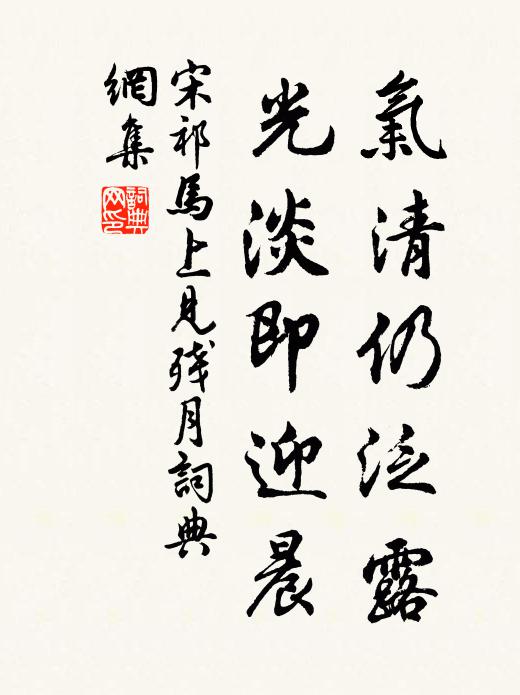 氣清仍泛露
光淡即迎晨
宋祁馬上見殘月詞典
網集
詞典网印